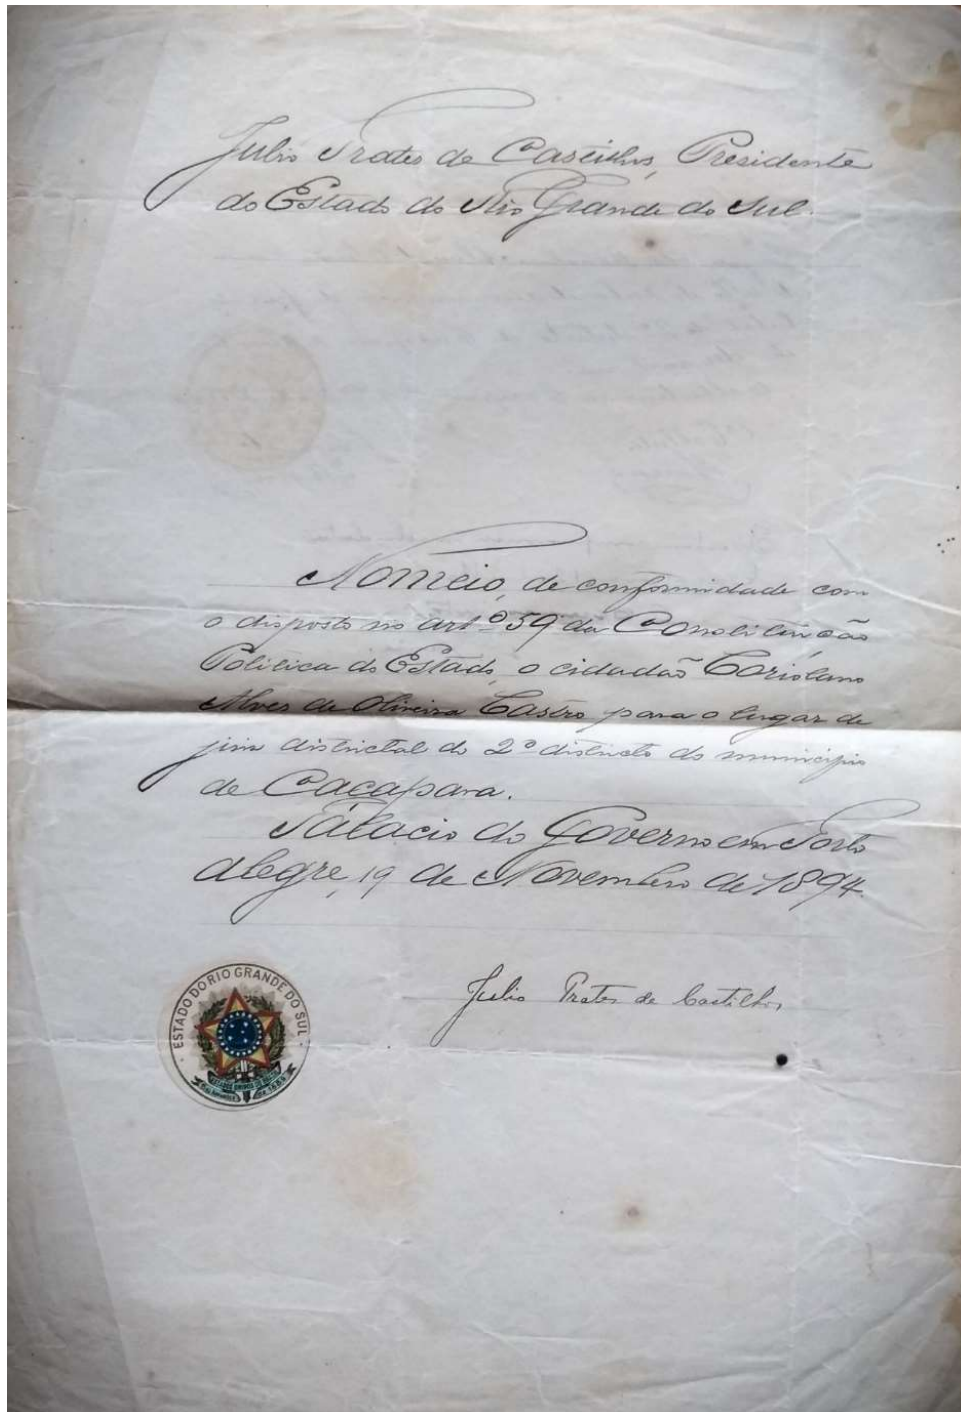 Julio Prates de Castilhos, Presidente
do Estado do Rio Grande do Sul.
Nomeio, de conformidade com
o disposto no artº 59 da Constituição
Politica do Estado, o cidadão Coriolano
Alves de Oliveira Castro para o lugar de
juiz districtal do 2º districto do municipio
de Caçapava.
Palacio do Governo em Porto
Alegre, 19 de Novembro de 1894.
Julio Prates de Castilhos
ESTADO DO RIO GRANDE DO SUL